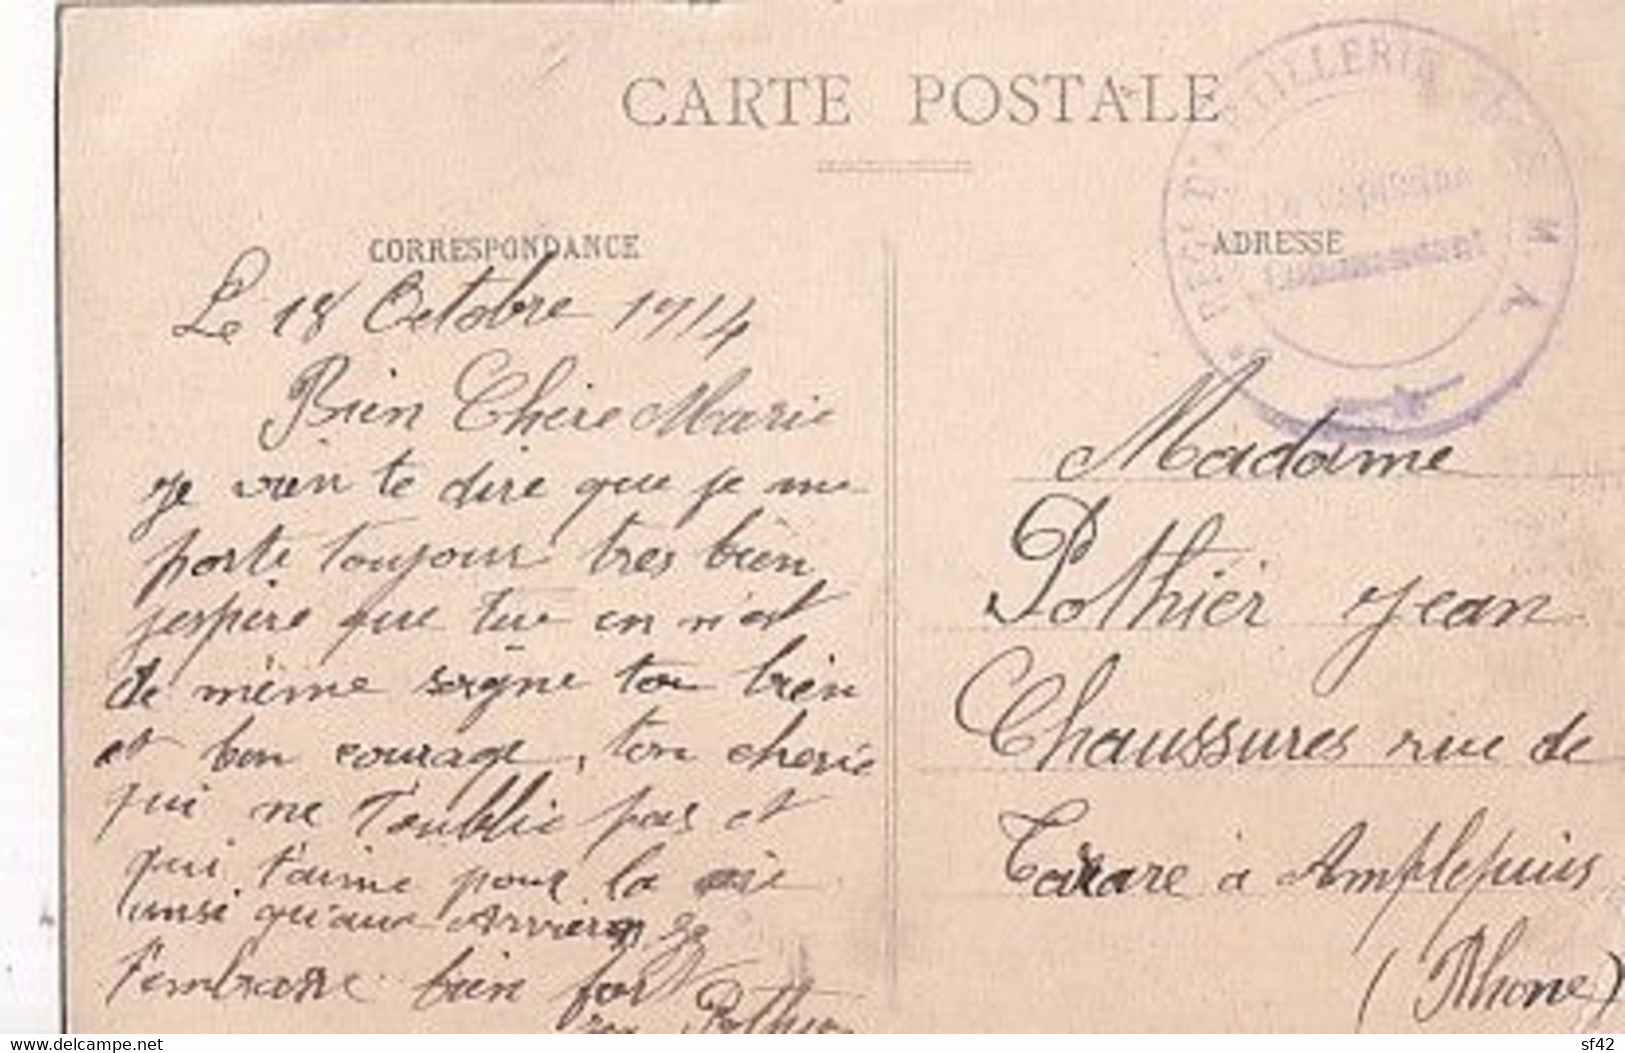 CARTE POSTALE
CORRESPONDANCE
Le 18 Octobre 1914
Bien Chère Marie
je vien te dire que je me
porte toujour très bien
jespère que tu en n'est
de même soigne toi bien
et bon courage, ton cherie
qui ne t'oublie pas et
qui t'aime pour la vie
insi qu'aux
t'embrasse bien fort
Pothier
ADRESSE
Madame
Pothier Jean
Chaussures rue de
Tarare à Amplepuis
(Rhone)
D'ARTILLERIE
Le Capitaine
Commandant
www.delcampe.net
sf42